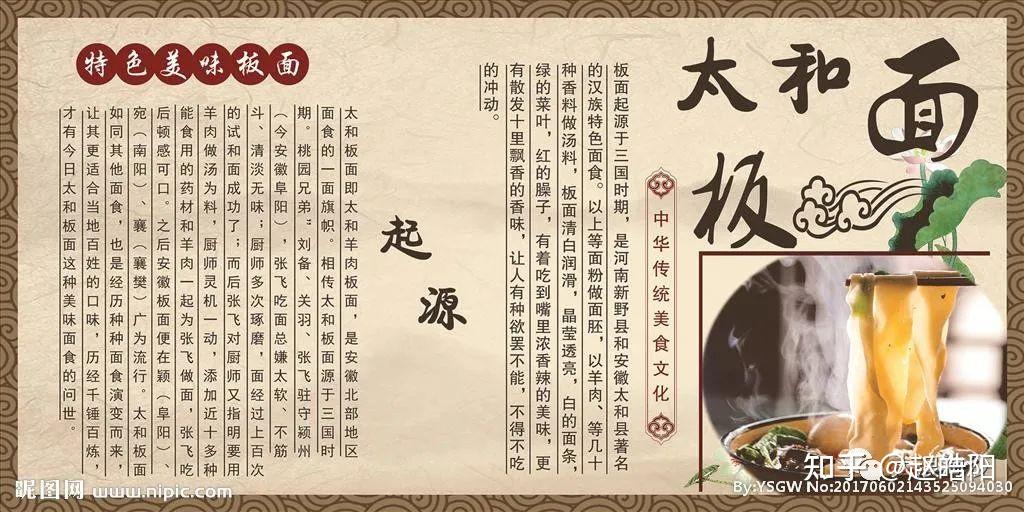 太和
板面
中华传统美食文化
板面起源于三国时期，是河南新野县和安徽太和县著名
的汉族特色面食。以上等面粉做面胚，以羊肉、等几十
种香料做汤料，板面清白润滑，晶莹透亮，白的面条，
绿的菜叶，红的臊子，有着吃到嘴里浓香辣的美味，更
有散发十里飘香的香味，让人有种欲罢不能，不得不吃
的冲动。
起源
特色美味板面
太和板面即太和羊肉板面，是安徽北部地区
面食的一面旗帜。相传太和板面源于三国时
期。桃园兄弟“刘备、关羽、张飞驻守颍州
（今安徽阜阳），张飞吃面总嫌太软、不筋
斗、清淡无味；厨师多次琢磨，面经过上百次
的试和面成功了；而后张飞对厨师又指明要用
羊肉做汤为料，厨师灵机一动，添加近十多种
能食用的药材和羊肉一起为张飞做面，张飞吃
后顿感可口。之后安徽板面便在颍（阜阳）、
宛（南阳）、襄（襄樊）广为流行。太和板面
如同其他面食，也是经历种种面食演变而来，
让其更适合当地百姓的口味，历经千锤百炼，
才有今日太和板面这种美味面食的问世。
昵图网 www.nipic.com
知乎 @赵皓阳
By:YSGW No:20170602143525094030